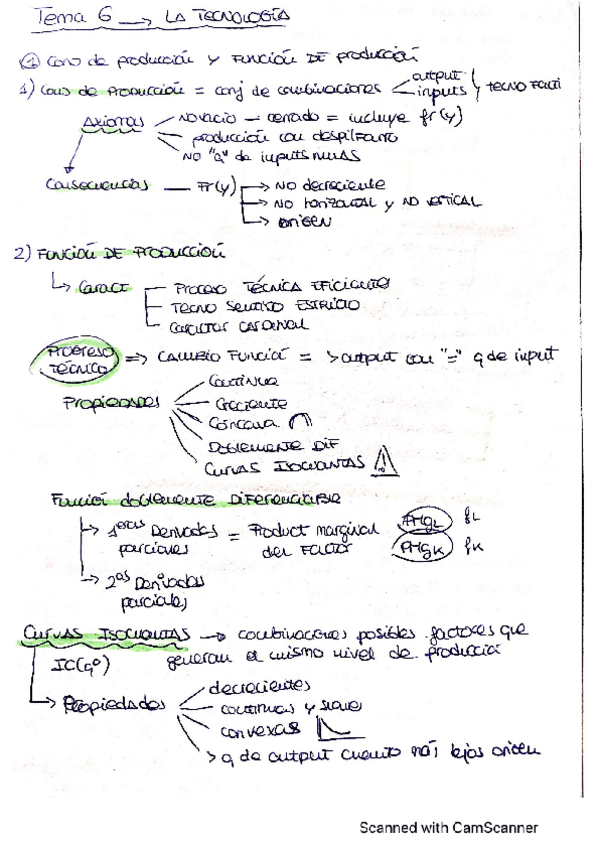 Tema 6 → LA TECNOLOGÍA
① Conj de producción y FUNCIÓN DE PRODUCCIÓN
1) Conj de PRODUCCIÓN = conj de combinaciones output inputs TECNO FACTI
AXIOMAS
NO VACIO - cerrado = incluye fr(y)
producción con despilfarro
NO "q" de inputs
Consecuencias — Fr(y) → NO decreciente
→ NO horizontal y NO VERTICAL
→ ORIGEN
2) FUNCIÓN DE PRODUCCIÓN
↳ Caract
PROCESO TÉCNICA EFICIENTE
TECNO SENTIDO ESTRICTO
CARÁCTER CARDINAL
PROGRESO TÉCNICO ⇒ CAMBIO FUNCIÓ = > output con "=" q de input
PROPIEDADES
Continua
Creciente
Cóncava
DOBLEMENTE DIF
CURVAS ISOCUANTAS
Funció doblemente DIFERENCIABLE
→ 1eras Derivadas parciales = Product marginal del FACTOR
PMgL fL
PMgK fK
→ 2as Derivadas parciales
CURVAS ISOCUANTAS → combinaciones posibles factores que
IC(q⁰) generan el mismo nivel de producció
↳ Propiedades
decrecientes
continuas y suaves
convexas
> q de output cuanto más lejos origen
Scanned with CamScanner